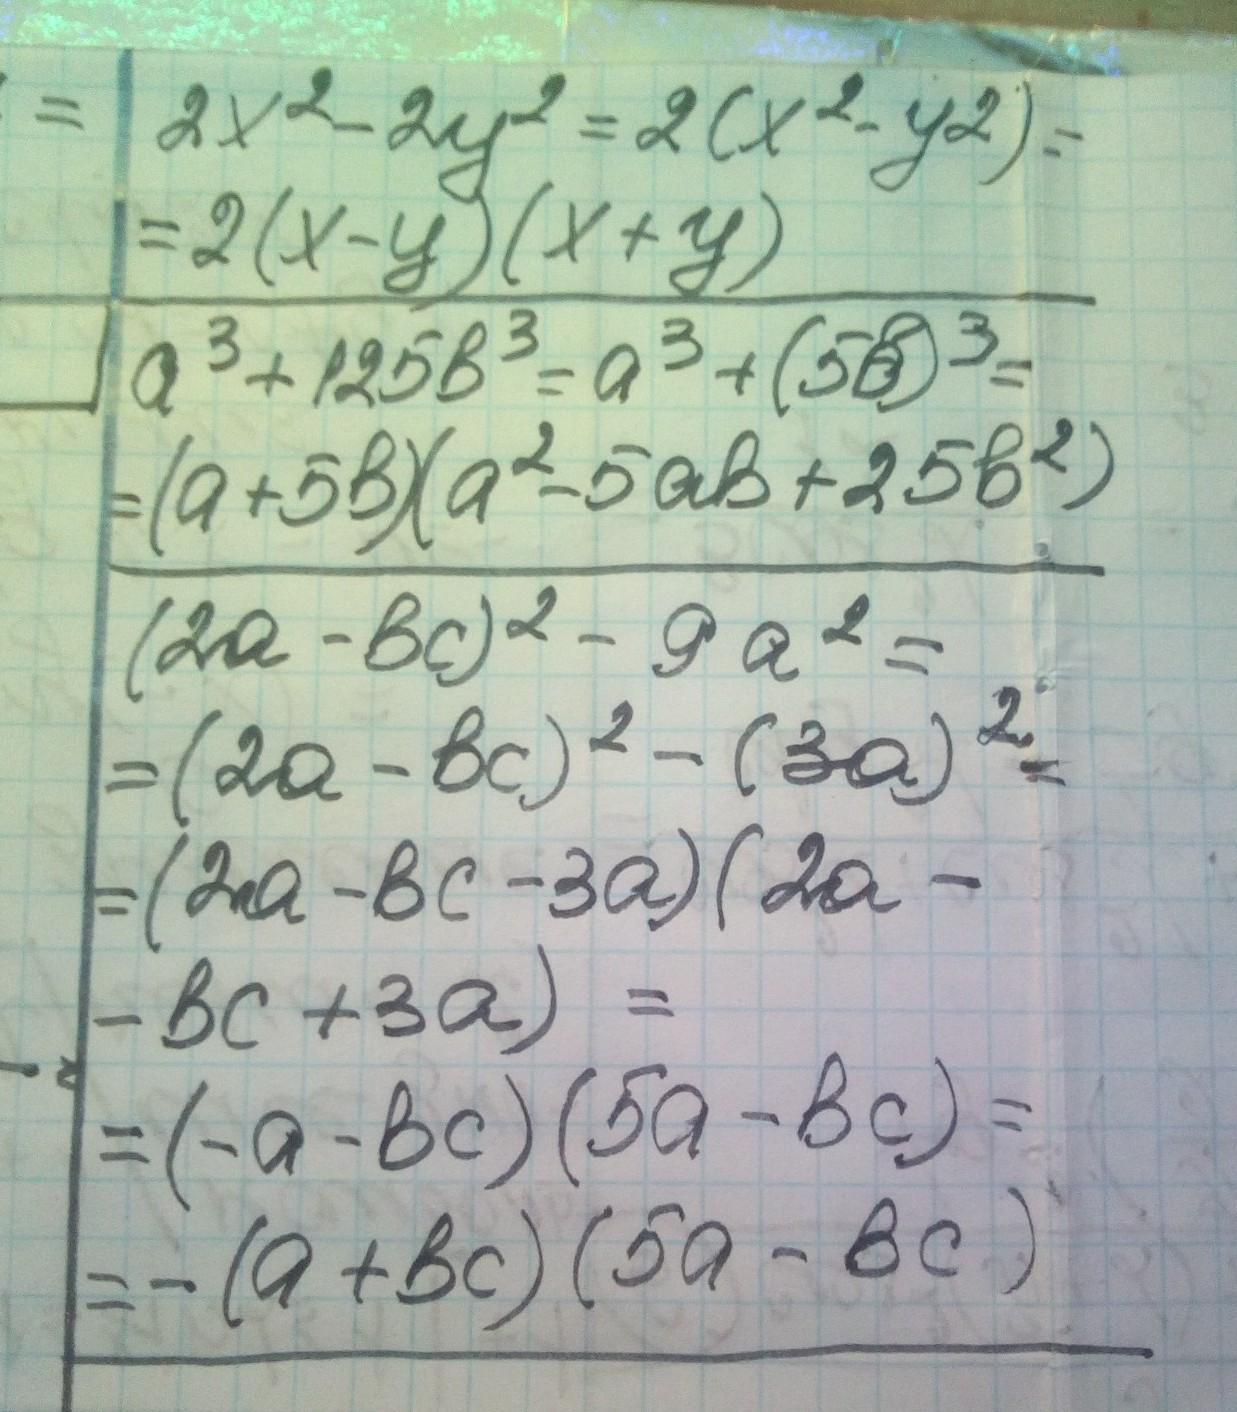 = 2x² - 2y² = 2(x² - y2) =
= 2(x - y)(x + y)
a³ + 125b³ = a³ + (5b)³ =
= (a + 5b)(a² - 5ab + 25b²)
(2a - bc)² - 9a² =
= (2a - bc)² - (3a)² =
= (2a - bc - 3a)(2a -
- bc + 3a) =
= (-a - bc)(5a - bc) =
= -(a + bc)(5a - bc)